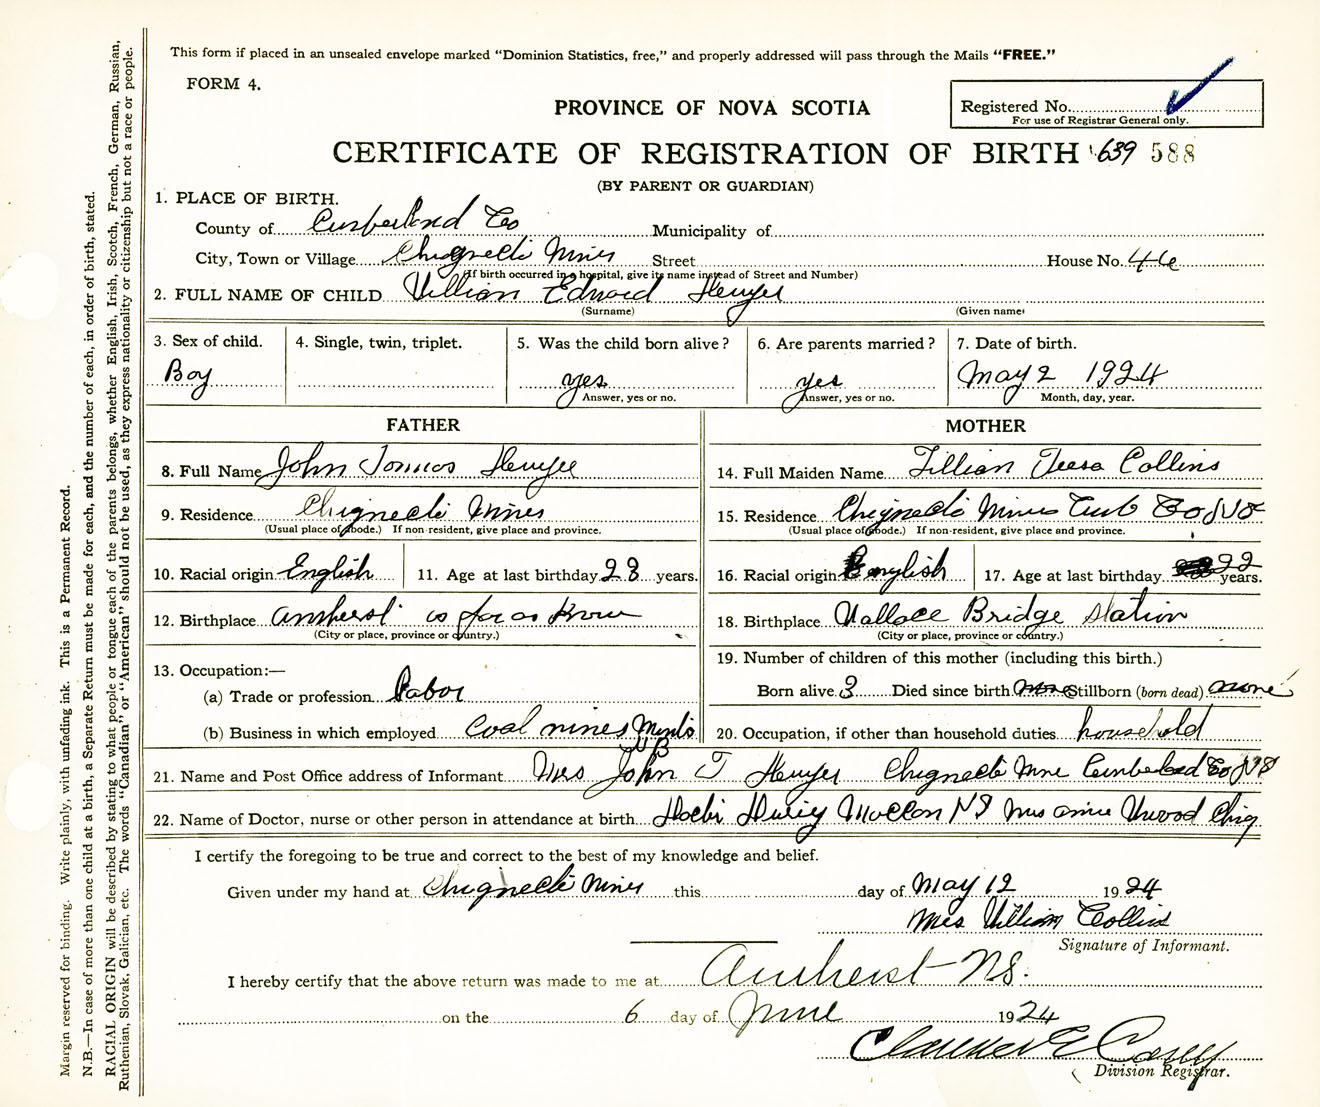 This form if placed in an unsealed envelope marked "Dominion Statistics, free," and properly addressed will pass through the Mails "FREE."
FORM 4.
PROVINCE OF NOVA SCOTIA
Registered No.
For use of Registrar General only.
CERTIFICATE OF REGISTRATION OF BIRTH 639 588
(BY PARENT OR GUARDIAN)
1. PLACE OF BIRTH.
County of Cumberland Co Municipality of
City, Town or Village Chignecto Mines Street House No. 46
(If birth occurred in a hospital, give its name instead of Street and Number)
2. FULL NAME OF CHILD William Edward
(Surname) (Given name)
3. Sex of child. 4. Single, twin, triplet. 5. Was the child born alive? 6. Are parents married? 7. Date of birth.
Boy yes yes May 2 1924
Answer, yes or no. Answer, yes or no. Month, day, year.
FATHER MOTHER
8. Full Name John 14. Full Maiden Name Lillian Teesa Collins
9. Residence Chignecto Mines 15. Residence Chignecto Mines Cumb Co NS
(Usual place of abode.) If non-resident, give place and province. (Usual place of abode.) If non-resident, give place and province.
10. Racial origin English 11. Age at last birthday 28 years. 16. Racial origin English 17. Age at last birthday 22 years.
12. Birthplace Amherst as far as know 18. Birthplace Wallace Bridge Station
(City or place, province or country.) (City or place, province or country.)
13. Occupation:— 19. Number of children of this mother (including this birth.)
(a) Trade or profession Labor Born alive 3 Died since birth none Stillborn (born dead) none
(b) Business in which employed Coal mines 20. Occupation, if other than household duties household
N B
21. Name and Post Office address of Informant Mrs John T Chignecto Mine Cumberland Co NS
22. Name of Doctor, nurse or other person in attendance at birth Maccan NS Mrs Chig
I certify the foregoing to be true and correct to the best of my knowledge and belief.
Given under my hand at Chignecto Mines this day of May 12 1924
Mrs William Collins
Signature of Informant.
I hereby certify that the above return was made to me at Amherst N.S.
on the 6 day of June 1924
Division Registrar.
Margin reserved for binding. Write plainly, with unfading ink. This is a Permanent Record.
N.B.—In case of more than one child at a birth, a Separate Return must be made for each, and the number of each, in order of birth, stated.
RACIAL ORIGIN will be described by stating to what people or tongue each of the parents belongs, whether English, Irish, Scotch, French, German, Russian,
Ruthenian, Slovak, Galician, etc. The words "Canadian" or "American" should not be used, as they express nationality or citizenship but not a race or people.